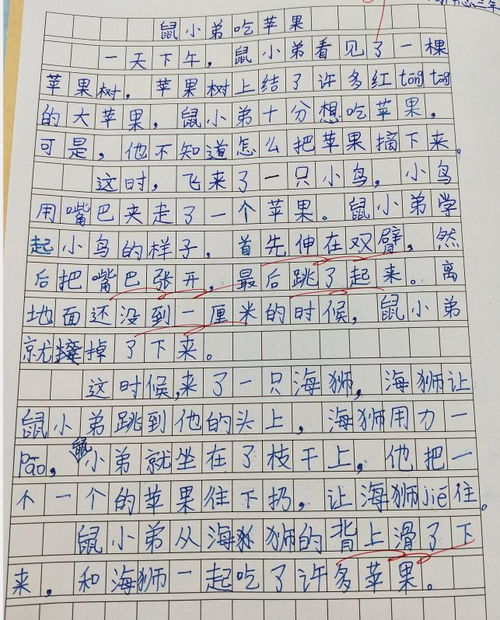 鼠小弟吃苹果
一天下午，鼠小弟看见了一棵
苹果树，苹果树上结了许多红tōng tōng
的大苹果，鼠小弟十分想吃苹果，
可是，他不知道怎么把苹果摘下来。
这时，飞来了一只小鸟，小鸟
用嘴巴夹走了一个苹果。鼠小弟学
起小鸟的样子，首先伸在双臂，然
后把嘴巴张开，最后跳了起来。离
地面还没到一厘米的时候，鼠小弟
就掉了下来。
这时候，来了一只海狮，海狮让
鼠小弟跳到他的头上，海狮用力一
pāo，鼠小弟就坐在了枝干上，他把一
个一个的苹果往下扔，让海狮jiē住。
鼠小弟从海狮的背上滑了下
来，和海狮一起吃了许多苹果。